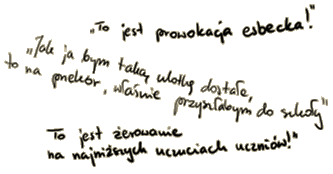 „To jest prowokacja esbecka!"
„Jak ja bym taką ulotkę dostała,
to na przekór, właśnie przyszłabym do szkoły"
To jest żerowanie
na najniższych uczuciach uczniów!"